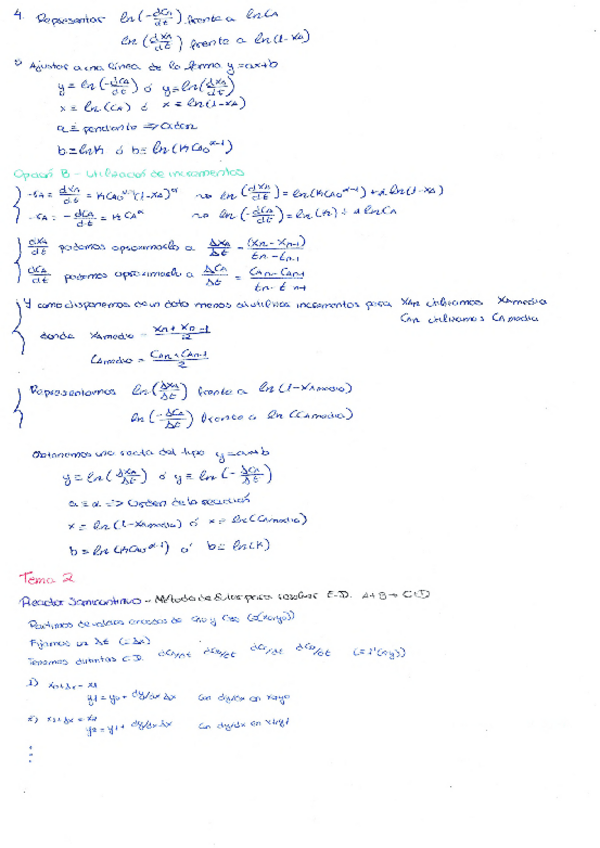 4. Representar ln(-dCA/dt) frente a ln CA
ln(dXA/dt) frente a ln(1-XA)
5) Ajustar a una línea de la forma y=ax+b
y=ln(-dCA/dt) ó y=ln(dXA/dt)
x=ln(CA) ó x=ln(1-XA)
a≡pendiente ⇒
b=lnK ó b=ln(KCA0^(α-1))
Opción B - Utilización de incrementos
-rA = dXA/dt = KCA0^(α-1)(1-XA)^α ⤳ ln(dXA/dt)=ln(KCA0^(α-1))+α ln(1-XA)
-rA = -dCA/dt = KCA^α ⤳ ln(-dCA/dt)=ln(K)+α ln CA
dXA/dt podemos aproximarlo a ΔXA/Δt = (Xn-Xn-1)/(tn-tn-1)
dCA/dt podemos aproximarlo a ΔCA/Δt = (CAn-CAn-1)/(tn-tn-1)
Y como disponemos de un dato menos al utilizar incrementos para XAn utilizamos XAmedia
CAn utilizamos CAmedia
donde XAmedio = (Xn+Xn-1)/2
CAmedio = (CAn+CAn-1)/2
Representamos ln(ΔXA/Δt) frente a ln(1-XAmedio)
ln(-ΔCA/Δt) frente a ln(CAmedio)
Obtenemos una recta del tipo y=ax+b
y=ln(ΔXA/Δt) ó y=ln(-ΔCA/Δt)
a=α => Orden de la reacción
x=ln(1-XAmedio) ó x=ln(CAmedio)
b=ln(KCA0^(α-1)) ó b=ln(K)
Tema 2
Reactor Semicontinuo - Método de Euler para resolver E.D. A+B → C+D
Partimos de valores de CA0 y CB0 (=(x0,y0))
Fijamos un Δt (=Δx)
Tenemos distintas E.D. dCA/dt dCB/dt dCC/dt dCD/dt (=f'(x,y))
1) x0+Δx=x1
y1=y0+dy/dx Δx Con dy/dx en x0,y0
2) x1+Δx=x2
y2=y1+dy/dx Δx Con dy/dx en x1,y1